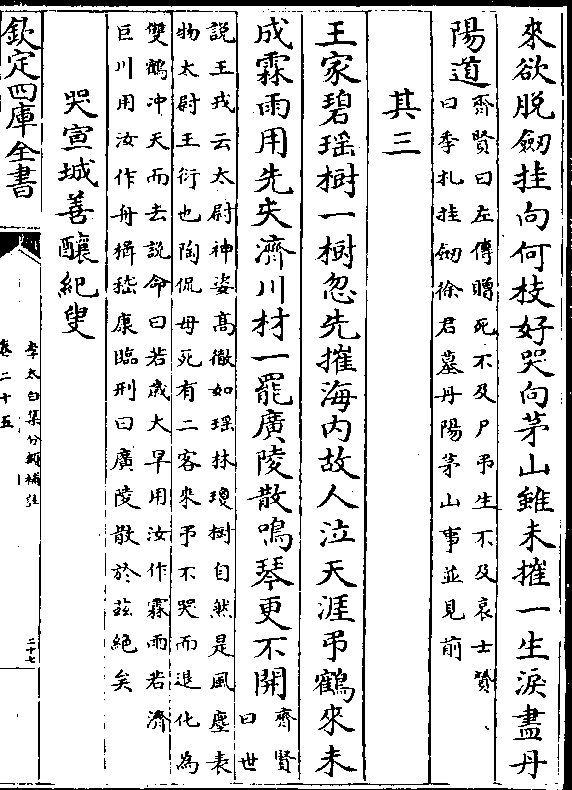 來欲脱劒挂向何枝好哭向茅山雖未摧一生淚盡丹
陽道
齊賢曰左傳贈死不及尸弔生不及哀士贇
曰季札挂劒徐君墓丹陽茅山事並見前
其三
王家碧瑶樹一樹忽先摧海内故人泣天涯弔鶴來未
成霖雨用先夫濟川材一罷廣陵散鳴琴更不開
齊賢
曰世
說王戎云太尉神姿髙徹如瑶林瓊樹自然是風塵表
物太尉王衍也陶侃母死有二客來弔不哭而退化為
雙鶴冲天而去說命曰若歳大旱用汝作霖雨若濟
巨川用汝作舟楫嵇康臨刑曰廣陵散於兹絶矣
哭宣城善釀紀叟
欽定四庫全書
李太白集分類補註
卷二十五
二十七